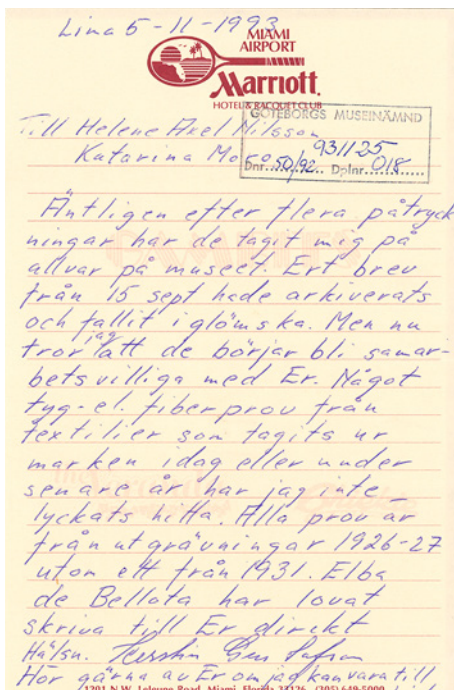 Lima 5-11-1993
MIAMI
AIRPORT
Marriott
HOTEL & RACQUET CLUB
GÖTEBORGS MUSEINÄMND
931125
Dnr 50/92 Dplnr 018
Till Helene Axel Nilsson
Katarina
Äntligen efter flera påtryck
ningar har de tagit mig på
allvar på museet. Ert brev
från 15 sept hade arkiverats
och fallit i glömska. Men nu
tror jag att de börjar bli samar-
betsvilliga med Er. Något
tyg- el. fiberprov från
textilier som tagits ur
marken idag eller under
senare år har jag inte
lyckats hitta. Alla prov är
från utgrävningar 1926-27
utom ett från 1931. Elba
de Bellota har lovat
skriva till Er direkt
Hälsn.
Hör gärna av Er om jag kan vara till
1201 N.W. LeJeune Road, Miami, Florida 33126 (305) 649-5000